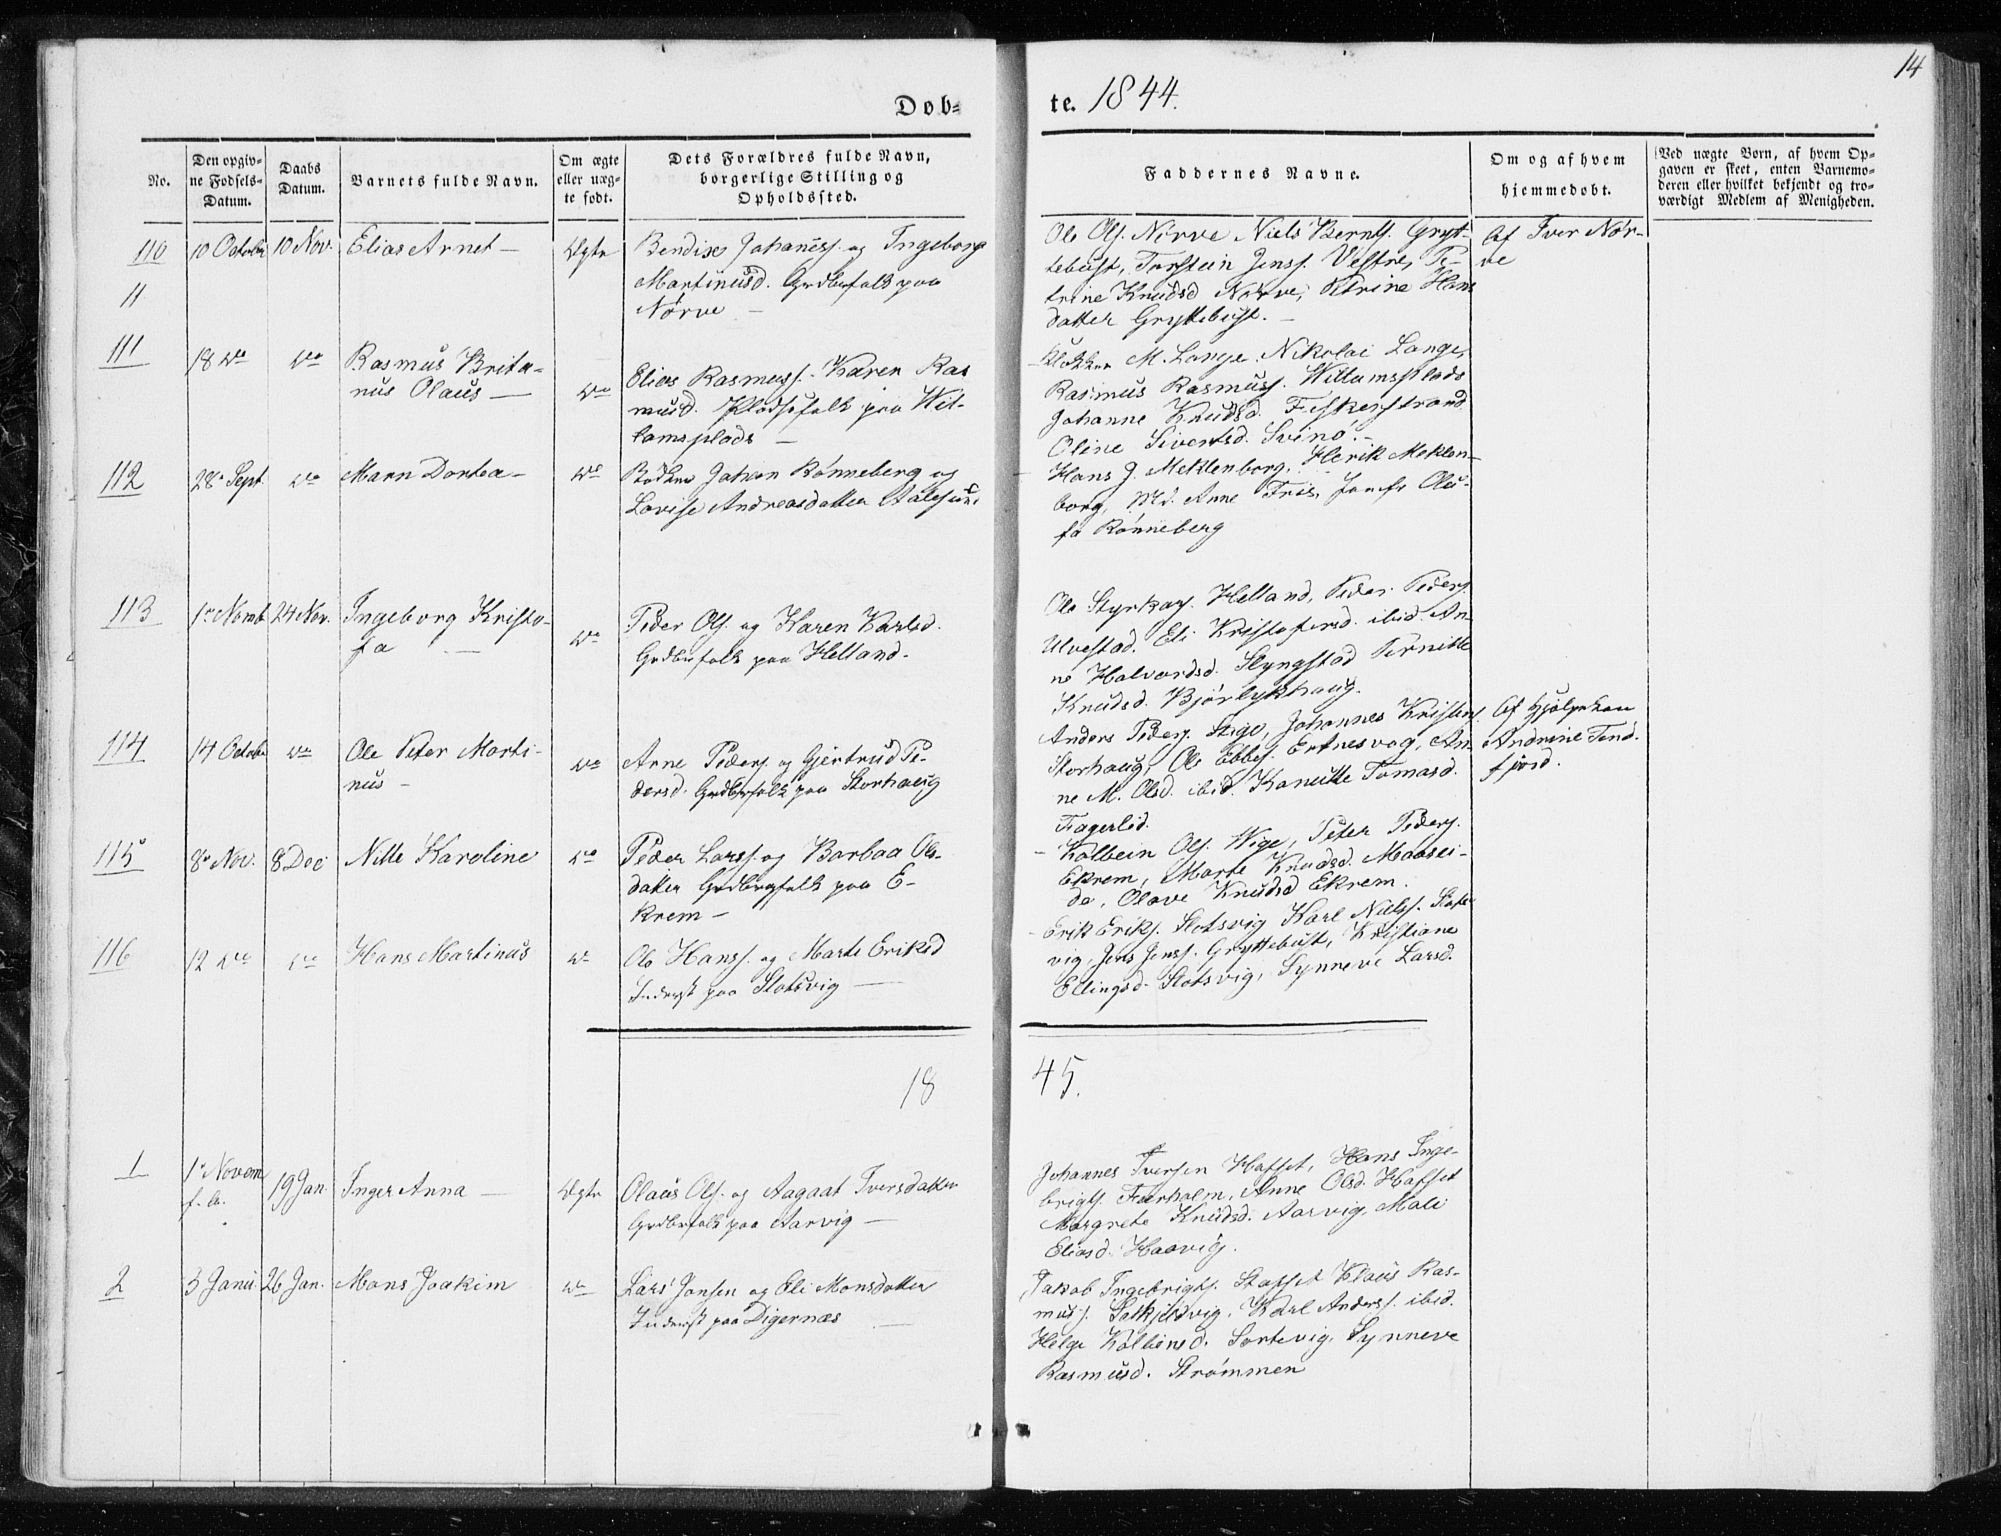 14
Døb- te. 1844.
No.
Den opgiv-
ne Fødsels-
Datum.
Daabs
Datum.
Barnets fulde Navn.
Om ægte
eller uæg-
te født.
Dets Forældres fulde Navn,
borgerlige Stilling og
Opholdssted.
Faddernes Navne.
Om og af hvem
hjemmedøbt.
Ved uægte Børn, af hvem Op-
gaven er skeet, enten Barnemo-
deren eller hvilket bekjendt og tro-
værdigt Medlem af Menigheden.
110
11
10 October
10 Nov.
Elias Arnet -
Ægte
Bendix Johaness. og Ingeborg
Martinusd. Grdbrfolk paa
Nørve -
Ole Ols. Nørve Niels Bernts. Gryt-
tebust, Torstein Jenss. Vestre, Pe-
trine Knudsd Nørve, Petrine Hans
datter Gryttebust. -
Af Iver Nør-
ve
111
18 do
do
Rasmus Brita-
nus Olaus -
do
Elias Rasmuss. Karen Ras
musd. Pladsefolk paa Wil-
lamsplads -
Klokker M. Lange. Nikolai Lange,
Rasmus Rasmuss. Willumsplads
Johanne Knudsd. Fiskerstrand
Oline Sivertsd. Svinø. -
112
28 Sept.
do
Maren Dortea -
do
Johan Rønneberg og
Lovise Andreasdatter Aalesund
Hans J. Meklenborg, Herik Meklen-
borg, Md. Anne Friis, Jomfr Olu-
fa Rønneberg
113
1 Novmb
24 Nov.
Ingeborg Kristo-
fa -
do
Peder Ols. og Karen Karlsd.
Grdbrfolk paa Helland.
Ole Styrkas. Helland, Peder Peders.
Ulvestad, Eli Kristofersd. ibid. An-
ne Halvordsd. Slyngstad Pernille
Knudsd. Bjørlykhaug.
114
14 Octobr
do
Ole Peter Marti-
nus -
do
Arne Peders. og Gjertrud Pe-
dersd. Grdbrfolk paa Storhaug
Anders Peders. Stige, Johannes Kristens.
Storhaug, Ole Ebbes. Ertnesvog, An-
ne M. Olsd. ibid. Kanutte Tomasd.
Fagerlid.
Af Hjælpekon
Andrine Tend
fjord.
115
8 Nov.
8 Dec
Nille Karoline
do
Peder Larss. og Barbaa Ols-
datter Grdbrfolk paa E-
krem -
Kolbein Ols. Wige, Peter Peders.
Ekrem, Marte Knudsd. Maasei-
de, Olave Knudsd Ekrem.
116
12 do
do
Hans Martinus
do
Ole Hanss. og Marte Eriksd
Inderst paa Slotsvig -
Erik Eriks. Slotsvig Karl Nielss. Slots
vig, Jens Jenss. Gryttebust, Kristiane
Ellingsd. Slotsvig, Synneve Larsd.
18 45.
1
1 Novem
f. A.
19 Jan.
Inger Anna -
Ægte
Olaus Ols. og Aagaat Iversdatter
Grdbrfolk paa Aarvig -
Johannes Iversen Hafset, Hans Inge-
brigts. Furholm, Anne Olsd. Hafset
Margrete Knudsd. Aarvig, Mali
Eliasd. Haavig.
2
5 Janu.
26 Jan.
Mons Joakim
do
Lars Jonsen og Eli Monsdatter
Inderst paa Digernæs -
Jakob Ingebrigts. Stafset Klaus Ras-
muss. Solkjelsvig, Karl Anderss. ibid.
Helge Kolbensd. Sortevig, Synneve
Rasmusd. Strømmen